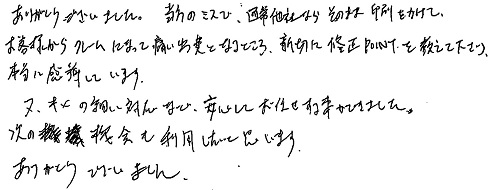 ありがとうございました。当方のミスで、通常他社ならそのまま印刷をかけて、
お客様からクレームになって痛い出費となるところ、親切に修正POINTを教えて下さり、
本当に感謝しています。
又、その細い対応など、安心してお任せする事ができました。
次の機会も利用したいと思います。
ありがとうございました。